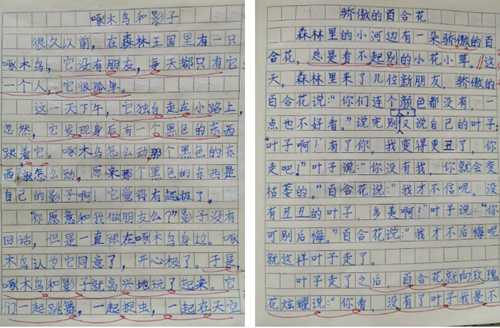 啄木鸟和影子
很久以前，在森林王国里有一只
啄木鸟，它没有朋友，每天都只有它
一个人，它很孤单。
这一天下午，它独自走在小路上，
忽然，它发现身后有一个黑色的东西
跟着它，啄木鸟怎么动，那个黑色的东
西就怎么动。原来那个黑色的东西是
自己的影子啊！它觉得有趣极了。
“你愿意和我做朋友么？”影子没有
回话，但是一直跟在啄木鸟身边。啄
木鸟认为它同意了，开心极了。于是，
啄木鸟和影子就高兴地玩了起来。它
们一起跳舞，一起捉虫，一起在天空
骄傲的百合花
森林里的小河边有一朵骄傲的百
合花，总是看不起别的小花小草。这
天，森林里来了几位新朋友，骄傲的
百合花说：“你们连个颜色都没有，一
点也不好看。”说完又说自己的叶子：
“叶子啊！有了你，我变得更丑了，你
走吧！”叶子说：“你没有我，你就会变
枯萎的。”百合花说：“我才不信呢，没
有丑丑的叶子，多美啊！”叶子说：“你
可别后悔。”百合花说：“我才不后悔呢
就这样叶子走了。
叶子走了之后，百合花就向玫瑰
花炫耀说：“你看，没有了叶子我是不